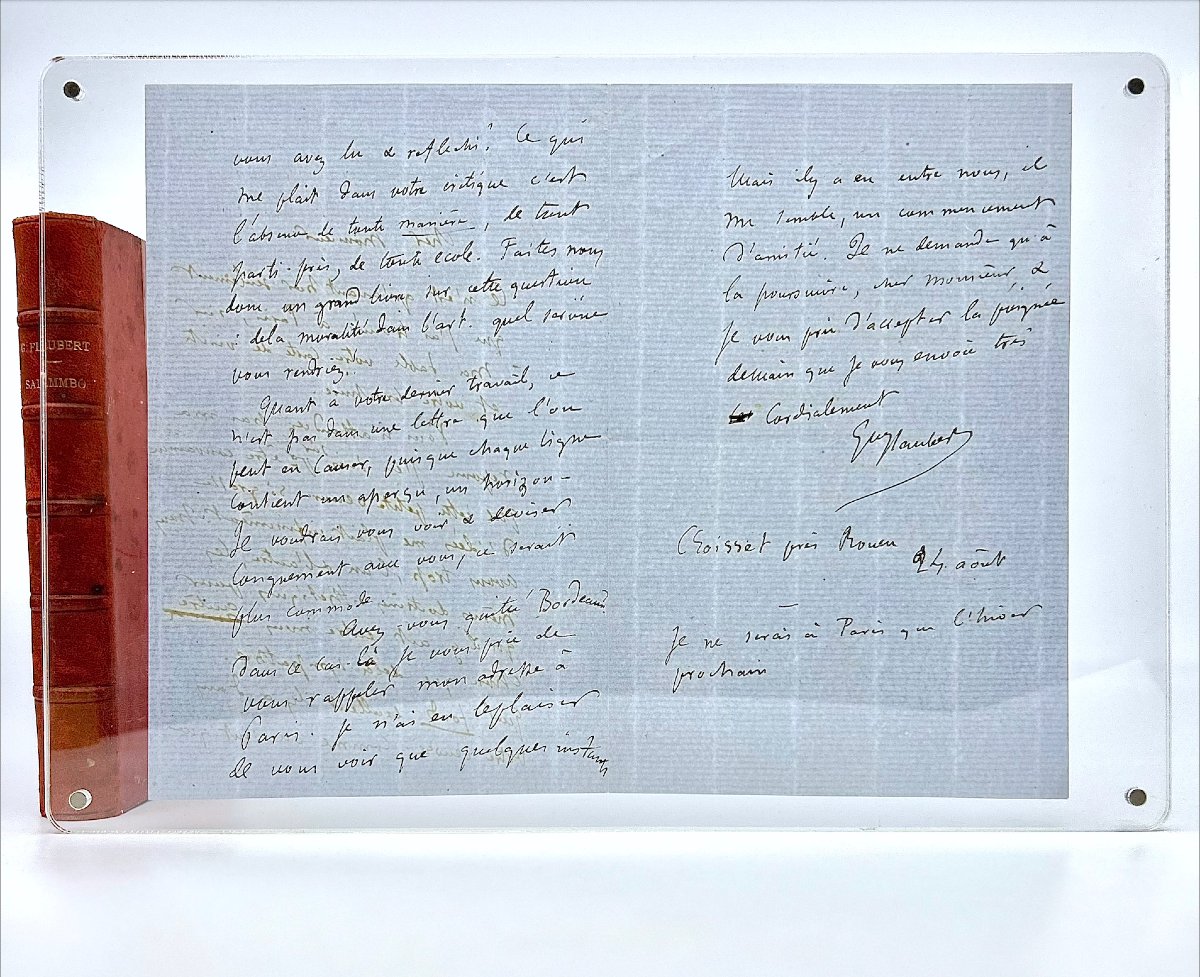 G. FLAUBERT
SALAMMBO
vous avez lu & reflechi! Ce qui
me plait dans votre critique c'est
l'absence de toute manière, de tout
parti-pris, de toute ecole. Faites nous
donc un grand livre sur cette question
: de la moralité dans l'art. quel service
vous rendriez!
Quant à votre dernier travail, ce
n'est pas dans une lettre que l'on
peut en causer, puisque chaque ligne
contient un aperçu, un horizon –
Je voudrais vous voir & deviser
longuement avec vous, ce serait
plus commode.
Avez-vous quitté Bordeaux
Dans ce cas-là je vous prie de
vous rappeler mon adresse à
Paris. Je n'ai eu le plaisir
de vous voir que quelques instans
Mais il y a eu entre nous, il
me semble, un commencement
d'amitié. Je ne demande qu'à
la poursuivre, cher monsieur &
je vous prie d'accepter la poignée
de main que je vous envoie très
Cordialement
Gve Flaubert
Croisset près Rouen
24 août
Je ne serai à Paris que l'hiver
prochain